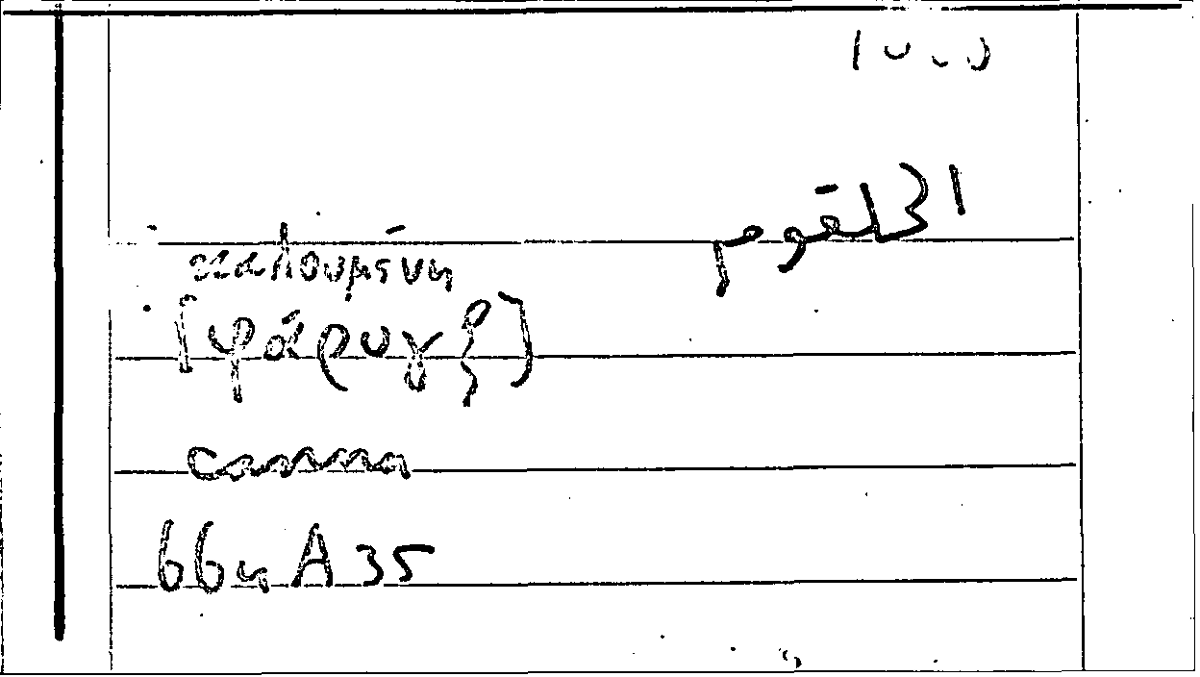 الحلقوم
καλουμένη
[φάρυγξ]
canna
664 A 35